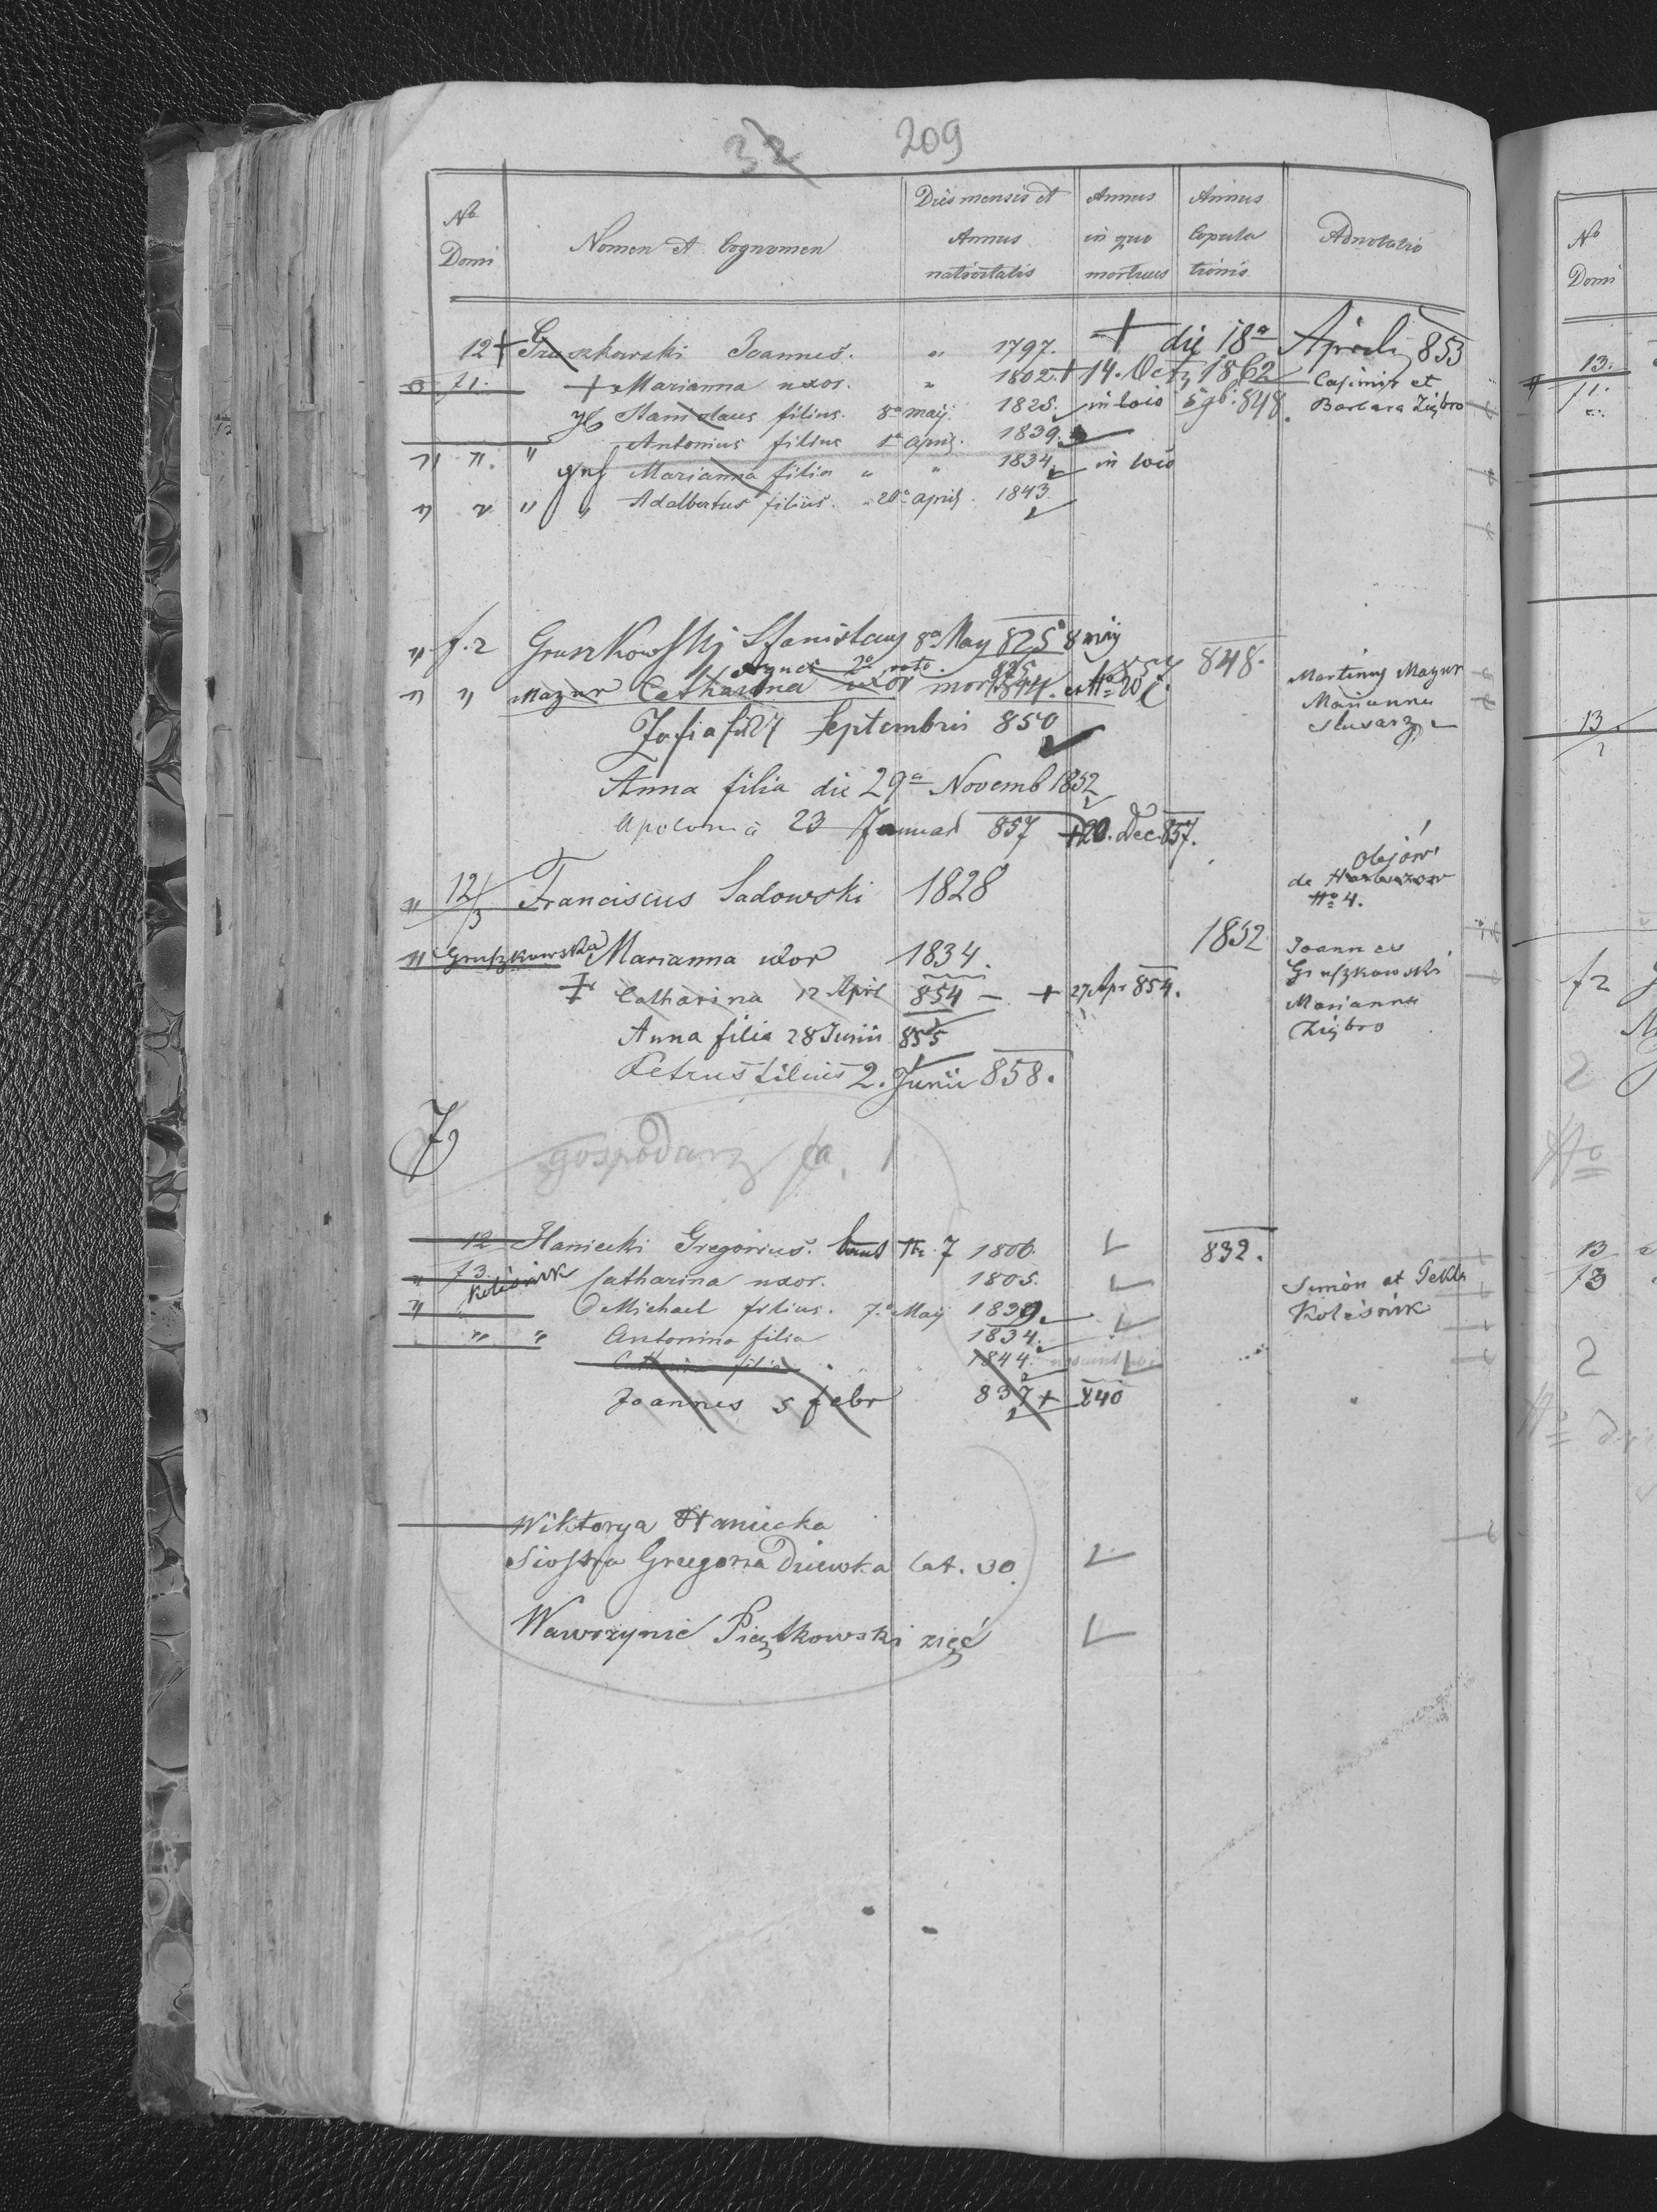 32 209
No Domi | Nomen et Cognomen | Dies mensis et Annus nativitatis | Annus in quo mortuus | Annus Copulationis | Adnotatio
12 + Gruszkowski Joannes. " 1797. + die 18a Aprilis 853
f1. + Marianna uxor. " 1802. + 14. Oct 1862 Casimir et
Stanislaus filius. 8a maij. 1825. in loco 848. Barbara Ziębro
Antonius filius 1a april. 1839.
" " " Marianna filia " " 1834. in loco
" " " " Adalbertus filius. 20a april. 1843.
" f.2 Gruszkowski Stanislaus 8a May 825 8 maj
" " Mazur Catharina uxor 848. Martinus Mazur
Marianna
Zofia fil 27 Septembris 850 Slusarz
Anna filia die 29a Novemb 1852
Apolonia 23 Januar 857 + 20. Dec. 857.
Olejów
" 12/3 Franciscus Sadowski 1828 de
No 4.
" Gruszkowska Marianna uxor 1834. 1852 Joannes
Gruszkowski
+ Catharina 12 April 854 — + 27 Apr 854. Marianna
Anna filia 28 Junii 855 Ziębro
Petrus filius 2. Junii 858.
7
gospodarz fa. 1
12 Haniecki Gregorius. No. 7 1806. 832.
" f3. Kolésnik Catharina uxor. 1805. Simon et Tekla
" Michael filius. 7a Maij 1839. Kolésnik
" " Antonina filia 1834.
Catharina filia " " 1844.
Joannes 5 febr 837 + 840
Wiktorya Haniecka
Siostra Grzegorza Dziewka lat. 30.
Wawrzyniec Piątkowski zięć
No Domi
13.
f1.
13
2
f2
2
No
13
f3
2
No